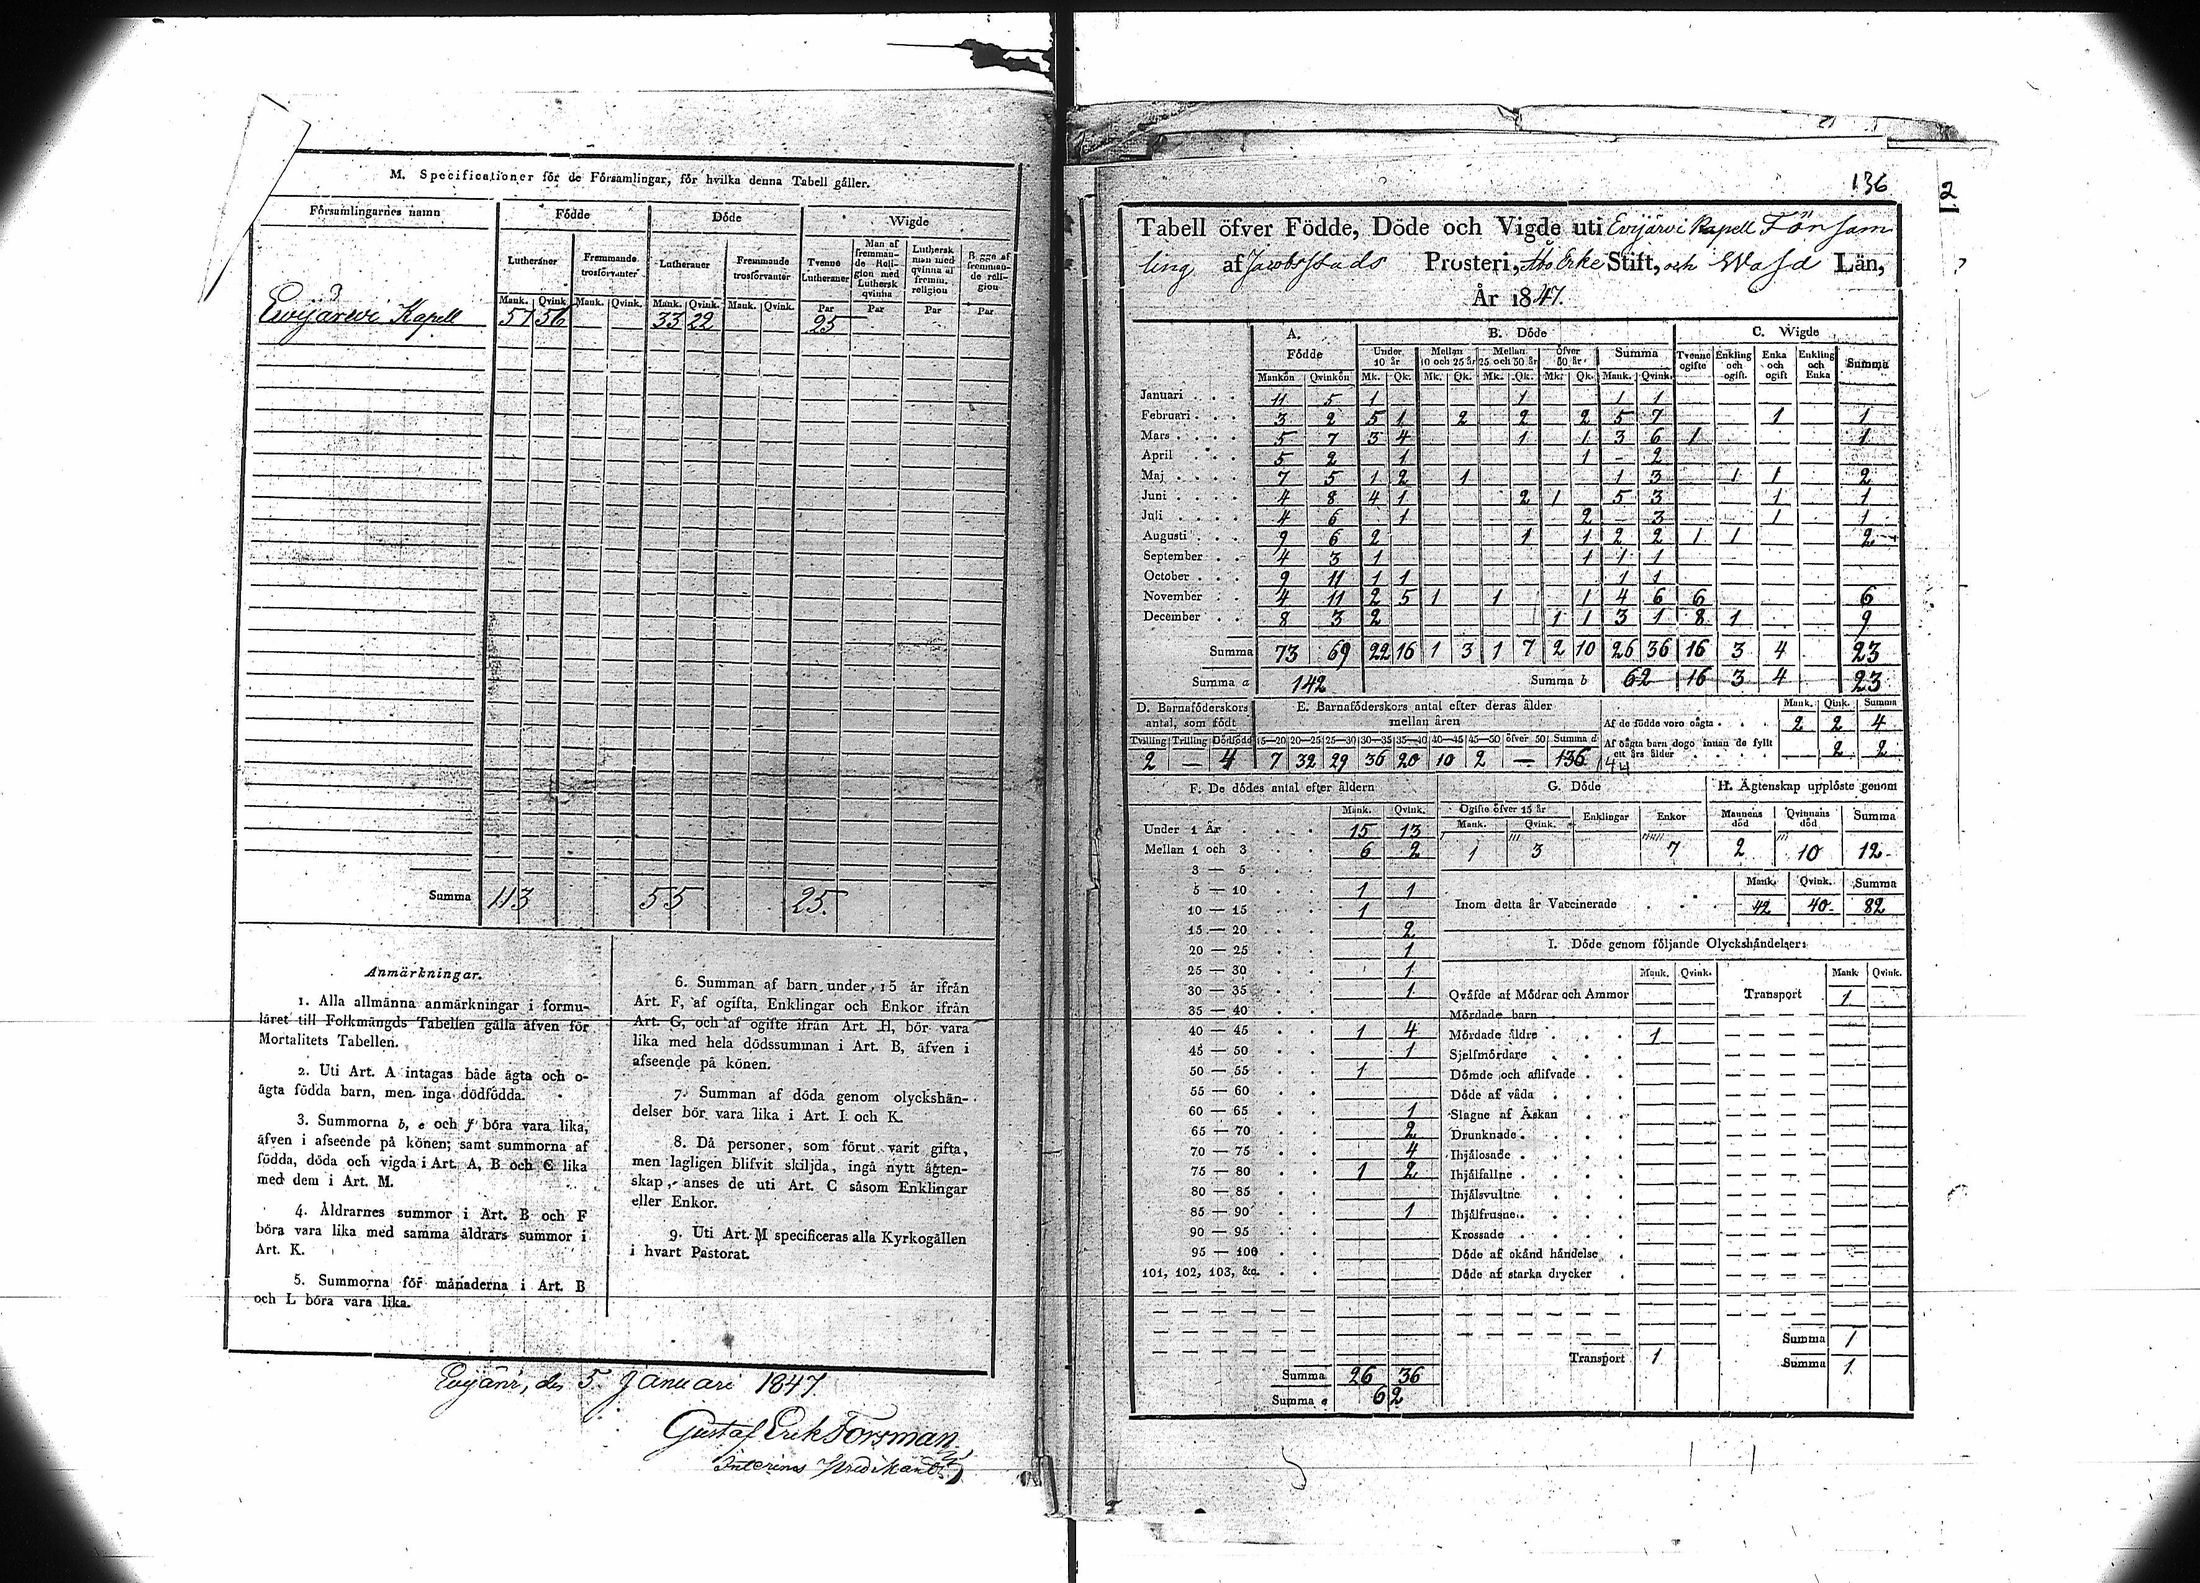 M. Specificationer för de Församlingar, för hvilka denna Tabell gäller.
Församlingarnes namn Födde Döde Wigde
Lutheraner Fremmande trosförvanter Lutheraner Fremmande trosförvanter Tvenne Lutheraner Man af fremmande Religion med Luthersk qvinna Luthersk man med qvinna af fremm. religion Begge af fremmande religion
Mank. Qvink. Mank. Qvink. Mank. Qvink. Mank. Qvink. Par Par Par Par
Ewijärwi Kapell 57 56 33 22 25
Summa 113 55 25.
Anmärkningar.
1. Alla allmänna anmärkningar i formu-
läret till Folkmängds Tabellen gälla äfven för
Mortalitets Tabellen.
2. Uti Art. A intagas både ägta och o-
ägta födda barn, men inga dödfödda.
3. Summorna b, e och f böra vara lika,
äfven i afseende på könen; samt summorna af
födda, döda och vigda i Art. A, B och C lika
med dem i Art. M.
4. Åldrarnes summor i Art. B och F
böra vara lika med samma åldrars summor i
Art. K.
5. Summorna för månaderna i Art. B
och L böra vara lika.
6. Summan af barn under 15 år ifrån
Art. F, af ogifta, Enklingar och Enkor ifrån
Art. G, och af ogifte ifrån Art. H, bör vara
lika med hela dödssumman i Art. B, äfven i
afseende på könen.
7. Summan af döda genom olyckshän-
delser bör vara lika i Art. I och K.
8. Då personer, som förut varit gifta,
men lagligen blifvit skiljda, ingå nytt ägten-
skap, anses de uti Art. C såsom Enklingar
eller Enkor.
9. Uti Art. M specificeras alla Kyrkogällen
i hvart Pastorat.
Evijärvi, den 5. Januari 1847
Gustaf Erik Forsman
136
2
Tabell öfver Födde, Döde och Vigde uti Evijärvi Kapell Försam
ling af Jacobsstads Prosteri, Åbo Erke Stift, och Wasa Län,
År 1847.
A. Födde B. Döde C. Wigde
Under 10 år Mellan 10 och 25 år Mellan 25 och 50 år Öfver 50 år Summa Tvenne ogifte Enkling och ogift. Enka och ogift Enkling och Enka Summa
Mankön Qvinkön Mk. Qk. Mk. Qk. Mk. Qk. Mk. Qk. Mank. Qvink.
Januari 11 5 1 1 1 1
Februari 3 2 5 1 2 2 2 5 7 1 1
Mars 5 7 3 4 1 1 3 6 1 1
April 5 2 1 1 - 2
Maj 7 5 1 2 1 1 3 1 1 2
Juni 4 8 4 1 2 1 5 3 1 1
Juli 4 6 1 2 - 3 1 1
Augusti 9 6 2 1 1 2 2 1 1 2
September 4 3 1 1 1 1
October 9 11 1 1 1 1
November 4 11 2 5 1 1 1 4 6 6 6
December 8 3 2 1 1 3 1 8 1 9
Summa 73 69 22 16 1 3 1 7 2 10 26 36 16 3 4 23
Summa a 142 Summa b 62 16 3 4 23
D. Barnaföderskors antal, som födt
Tvilling Trilling Dödfödd
2 — 4
E. Barnaföderskors antal efter deras ålder mellan åren
15—20 20—25 25—30 30—35 35—40 40—45 45—50 öfver 50 Summa d
7 32 29 36 20 10 2 — 136
Mank. Qink. Summa
Af de födde voro oägta 2 2 4
Af oägta barn dogo innan de fyllt ett års ålder 2 2
F. De dödes antal efter åldern
Mank. Qvink.
Under 1 År 15 13
Mellan 1 och 3 6 2
3 — 5
5 — 10 1 1
10 — 15 1
15 — 20 2
20 — 25 1
25 — 30 1
30 — 35 1
35 — 40
40 — 45 1 4
45 — 50 1
50 — 55 1
55 — 60
60 — 65 1
65 — 70 2
70 — 75 4
75 — 80 1 2
80 — 85
85 — 90 1
90 — 95
95 — 100
101, 102, 103, &c.
Summa 26 36
Summa e 62
G. Döde
Ogifte öfver 15 år Enklingar Enkor
Mank. Qvink.
1 3 7
H. Ägtenskap upplöste genom
Mannens död Qvinnans död Summa
2 10 12
Mank. Qvink. Summa
Inom detta år Vaccinerade 42 40 82
I. Döde genom följande Olyckshändelser:
Mank. Qvink. Mank. Qvink.
Qväfde af Mödrar och Ammor Transport 1
Mördade barn
Mördade äldre 1
Sjelfmördare
Dömde och aflifvade
Döde af våda
Slagne af Åskan
Drunknade
Ihjälosade
Ihjälfallne
Ihjälsvultne
Ihjälfrusne
Krossade
Döde af okänd händelse
Döde af starka drycker
Summa 1
Transport 1 Summa 1